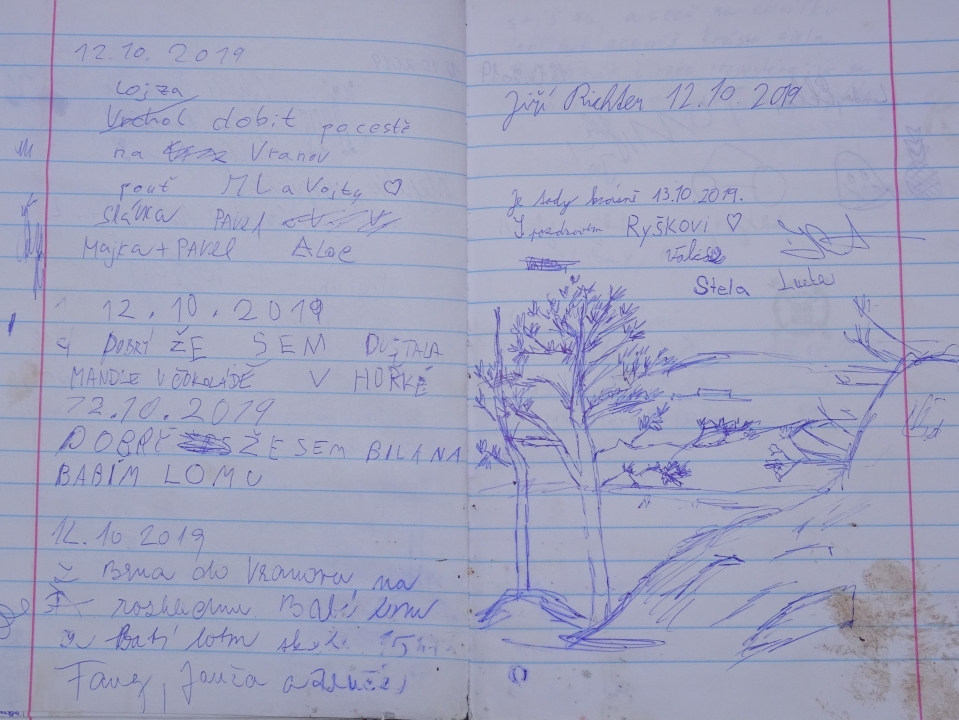 12.10.2019
Lojza
Vrchol dobit po cestě
na Vranov
pouť ML a Vojty ♡
Slávka PAVEL
Majka + PAVEL ALOE
12.10.2019
DOBRÝ ŽE SEM
MANDLE V ČOKOLÁDĚ V HOŘKÉ
12.10.2019
DOBRÉ ŽE SEM BILA NA
BABÍM LOMU
12.10 2019
Z Brna do Vranova na
rozhlednu Babí lom
Babí lom
Jiří Richter 12.10.2019
Je tady krásně 13.10.2019.
S pozdravem Ryškovi ♡
Stela Lucka